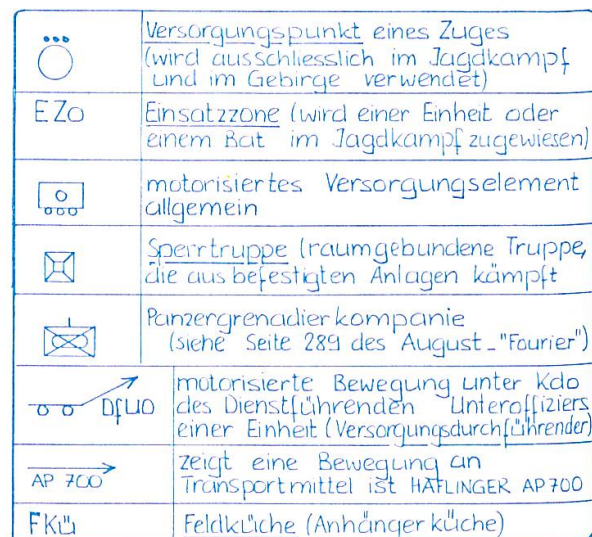 Versorgungspunkt eines Zuges
(wird ausschliesslich im Jagdkampf
und im Gebirge verwendet)
EZo
Einsatzzone (wird einer Einheit oder
einem Bat im Jagdkampf zugewiesen)
motorisiertes Versorgungselement
allgemein
Sperrtruppe (raumgebundene Truppe,
die aus befestigten Anlagen kämpft
Panzergrenadierkompanie
(siehe Seite 289 des August-"Fourier")
DfUO
motorisierte Bewegung unter Kdo
des Dienstführenden Unteroffiziers
einer Einheit (Versorgungsdurchführender)
AP 700
zeigt eine Bewegung an
Transportmittel ist HAFLINGER AP700
FKü
Feldküche (Anhängerküche)